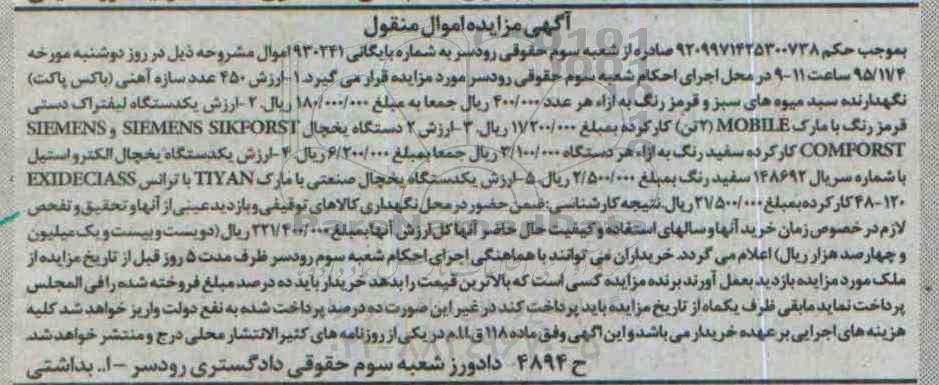 آگهی مزایده اموال منقول
بموجب حکم ۹۲۰۹۹۷۱۴۲۵۳۰۰۷۳۸ صادره از شعبه سوم حقوقی رودسر به شماره بایگانی ۹۳۰۲۴۱ اموال مشروحه ذیل در روز دوشنبه مورخه
۹۵/۱۱/۴ ساعت ۱۱-۹ در محل اجرای احکام شعبه سوم حقوقی رودسر مورد مزایده قرار می گیرد. ۱-ارزش ۴۵۰ عدد سازه آهنی (باکس پاکت)
نگهدارنده سبد میوه های سبز و قرمز رنگ به ازاء هر عدد ۴۰۰/۰۰۰ ریال جمعا به مبلغ ۱۸۰/۰۰۰/۰۰۰ ریال. ۲-ارزش یکدستگاه لیفتراک دستی
قرمز رنگ با مارک MOBILE (۲تن) کارکرده بمبلغ ۱۷/۲۰۰/۰۰۰ ریال. ۳-ارزش ۲ دستگاه یخچال SIEMENS SIKFORST و SIEMENS
COMFORST کارکرده سفید رنگ به ازاء هر دستگاه ۳/۱۰۰/۰۰۰ ریال جمعا بمبلغ ۶/۲۰۰/۰۰۰ ریال. ۴-ارزش یکدستگاه یخچال الکترو استیل
با شماره سریال ۱۴۸۶۹۲ سفید رنگ بمبلغ ۲/۵۰۰/۰۰۰ ریال. ۵-ارزش یکدستگاه یخچال صنعتی با مارک TIYAN با ترانس EXIDECIASS
۴۸-۱۲۰ کارکرده بمبلغ ۲۷/۵۰۰/۰۰۰ ریال. نتیجه کارشناسی: ضمن حضور در محل نگهداری کالاهای توقیفی و بازدید عینی از آنها و تحقیق و تفحص
لازم در خصوص زمان خرید آنها و سالهای استفاده و کیفیت حال حاضر آنها کل ارزش آنها بمبلغ ۲۲۱/۴۰۰/۰۰۰ ریال (دویست و بیست و یک میلیون
و چهارصد هزار ریال) اعلام می گردد. خریداران می توانند با هماهنگی اجرای احکام شعبه سوم رودسر ظرف مدت ۵ روز قبل از تاریخ مزایده از
ملک مورد مزایده بازدید بعمل آورند برنده مزایده کسی است که بالاترین قیمت را بدهد خریدار باید ده درصد مبلغ فروخته شده را فی المجلس
پرداخت نماید مابقی ظرف یکماه از تاریخ مزایده باید پرداخت کند در غیر این صورت ده درصد پرداخت شده به نفع دولت واریز خواهد شد کلیه
هزینه های اجرایی بر عهده خریدار می باشد و این اگهی وفق ماده ۱۱۸ ق.ا.م در یکی از روزنامه های کثیرالانتشار محلی درج و منتشر خواهد شد.
ح ۴۸۹۴ دادورز شعبه سوم حقوقی دادگستری رودسر -ا.. بداشتی